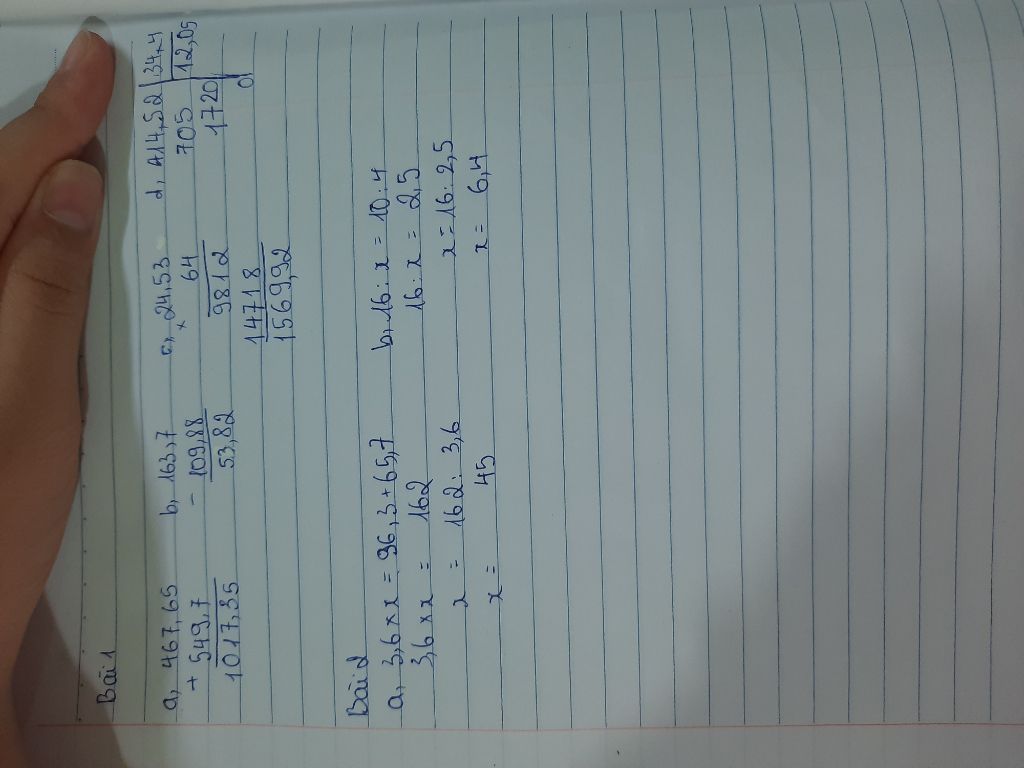 Bài 1
a, 467,65 b, 163,7 c, 24,53 d, 414,52 34,4
+ 549,7 - 109,88 × 64 705 12,05
1017,35 53,82 9812 1720
14718 0
1569,92
Bài 2
a, 3,6 × x = 96,3 + 65,7 b, 16 : x = 10 : 4
3,6 × x = 162 16 : x = 2,5
x = 162 : 3,6 x = 16 : 2,5
x = 45 x = 6,4